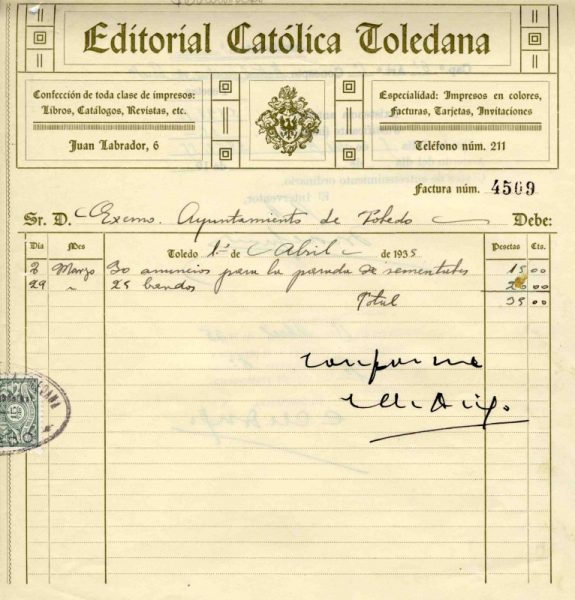 Editorial Católica Toledana
Confección de toda clase de impresos:
Libros, Catálogos, Revistas, etc.
Juan Labrador, 6
Especialidad: Impresos en colores,
Facturas, Tarjetas, Invitaciones
Teléfono núm. 211
Factura núm. 4509
Sr. D. Excmo. Ayuntamiento de Toledo Debe:
Día Mes Toledo 1º de Abril de 1935 Pesetas Cts.
2 Marzo 30 anuncios para la parada de sementales 15 00
29 " 25 bandos 20 00
Total 35 00
conforme